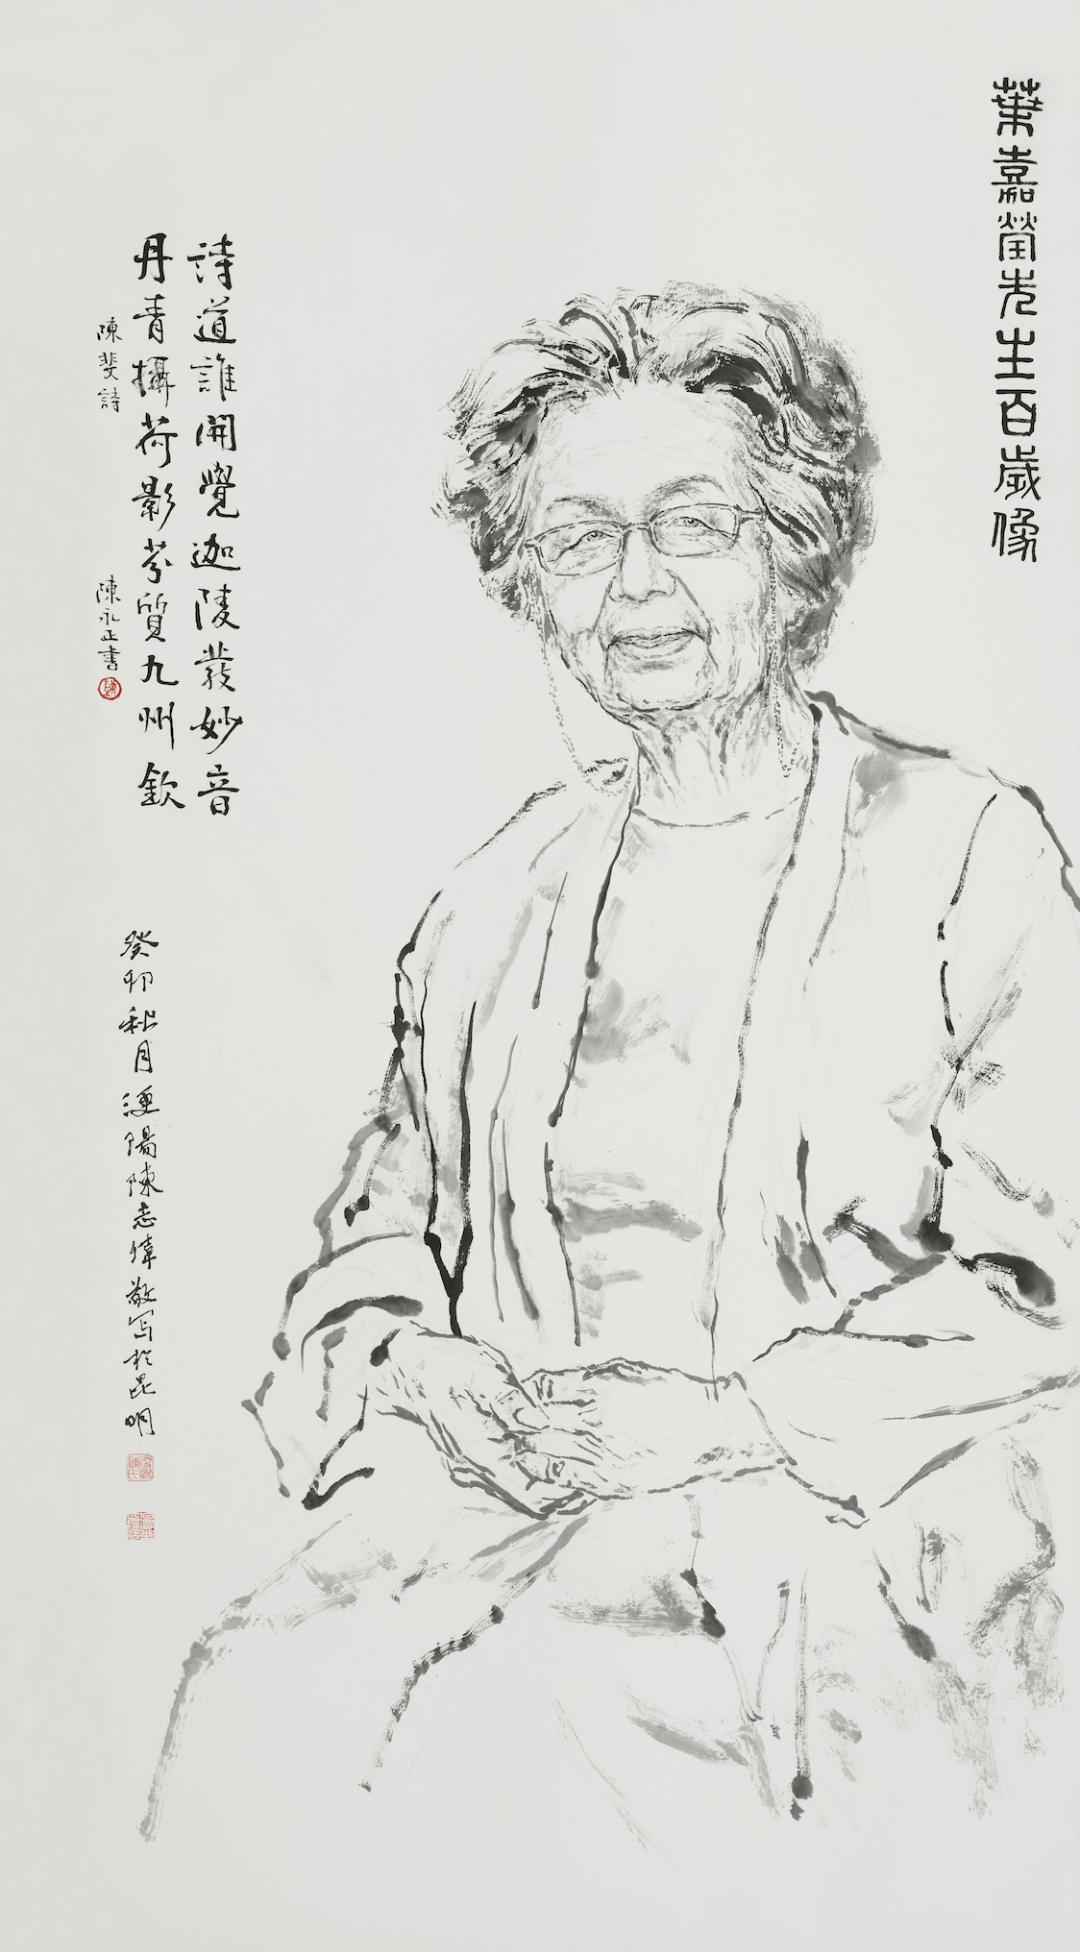 葉嘉瑩先生百歲像
詩道誰開覺迦陵發妙音
丹青攝荷影芬質九州欽
陳斐詩
陳永正書
癸卯秋月陽陳志偉敬写於昆明